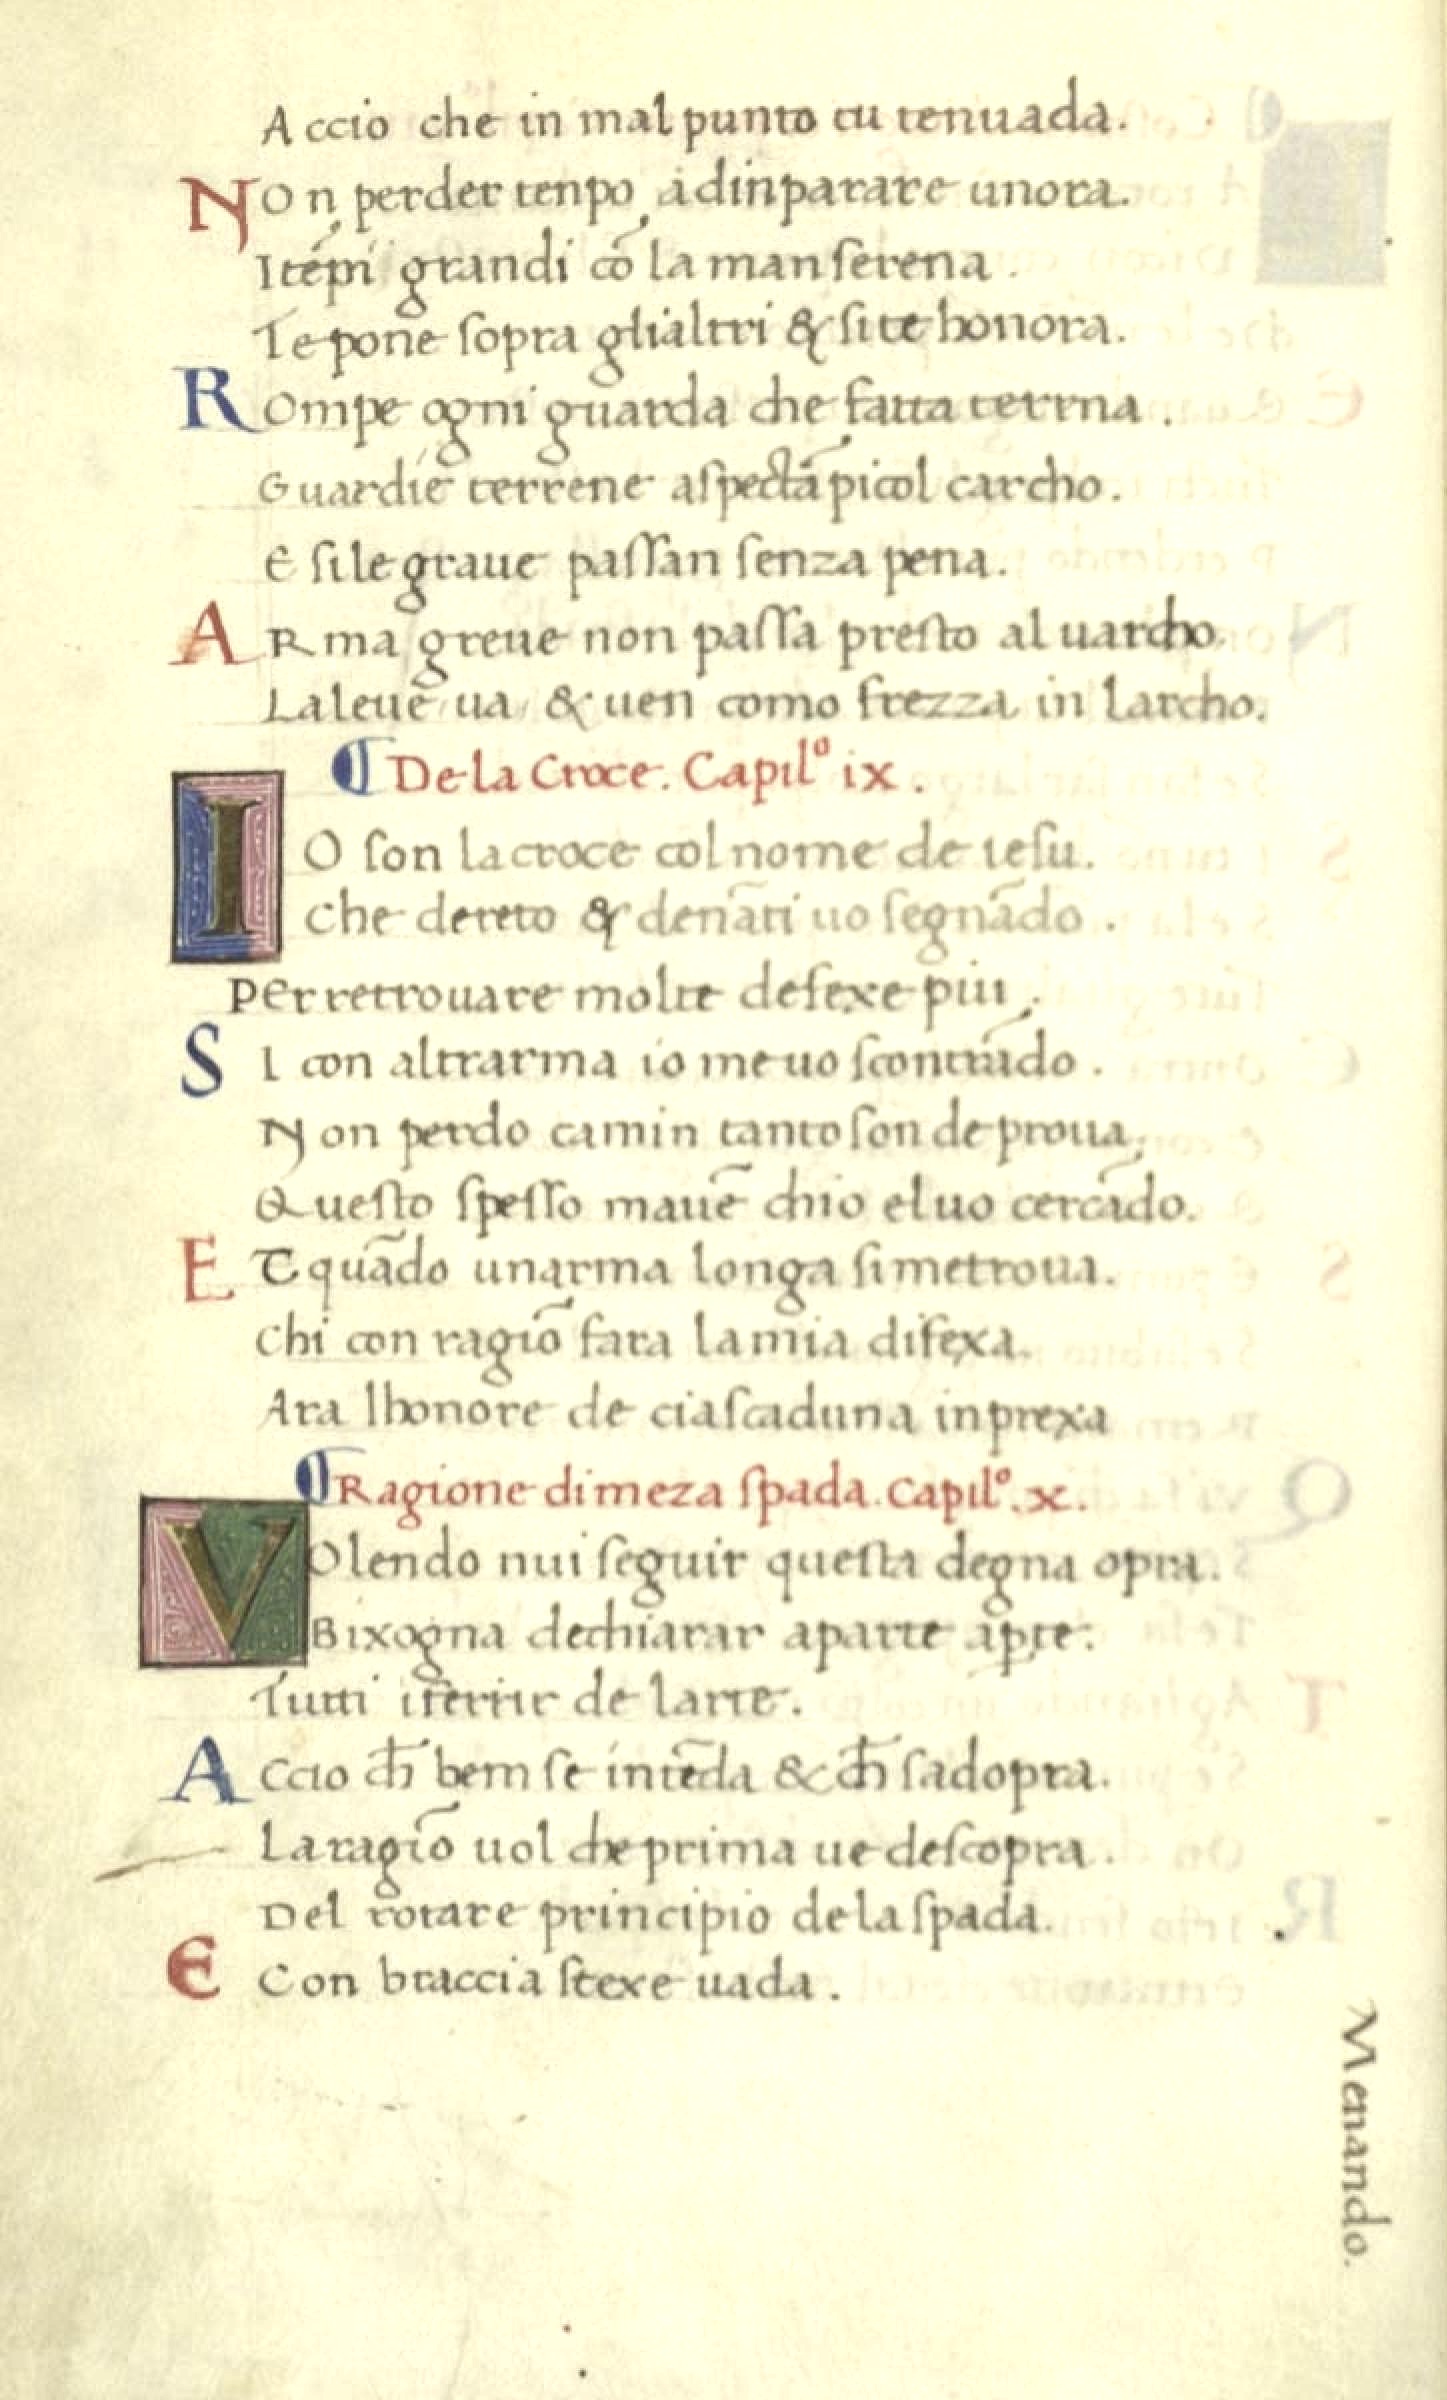 Accio che in mal punto tu tenuada.
NOn perder tenpo adinparare unora.
I tẽpi grandi cõ la man serena.
Te pone sopra glialtri & site honora.
ROmpe ogni guarda che fatta terrna.
Guardie terrene aspectã picol carcho.
E sile graue passan senza pena.
ARma greue non passa presto al uarcho.
Laleue ua & uen como frezza in larcho.
¶ De la Croce. Capilº ix.
IO son la croce col nome de iesu.
Che dereto & denãti uo segnãdo.
Per retrouare molte defexe piu.
SI con altrarma io me uo scontrãdo.
Non perdo camin tanto son de proua.
Questo spesso mauẽ chio el uo cercãdo.
ET quãdo unarma longa si me troua.
Chi con ragiõ fara la mia difexa.
Ara lhonore de ciascaduna inprexa
¶ Ragione di meza spada. Capilº. x.
VOlendo nui seguir questa degna opra.
Bixogna dechiarar aparte apte.
Tutti i ferrir de larte.
ACcio ch̃ bem se intẽda & ch̃ sadopra.
La ragiõ uol che prima ue descopra.
Del rotare principio de la spada.
E Con braccia stexe uada.
Menando.